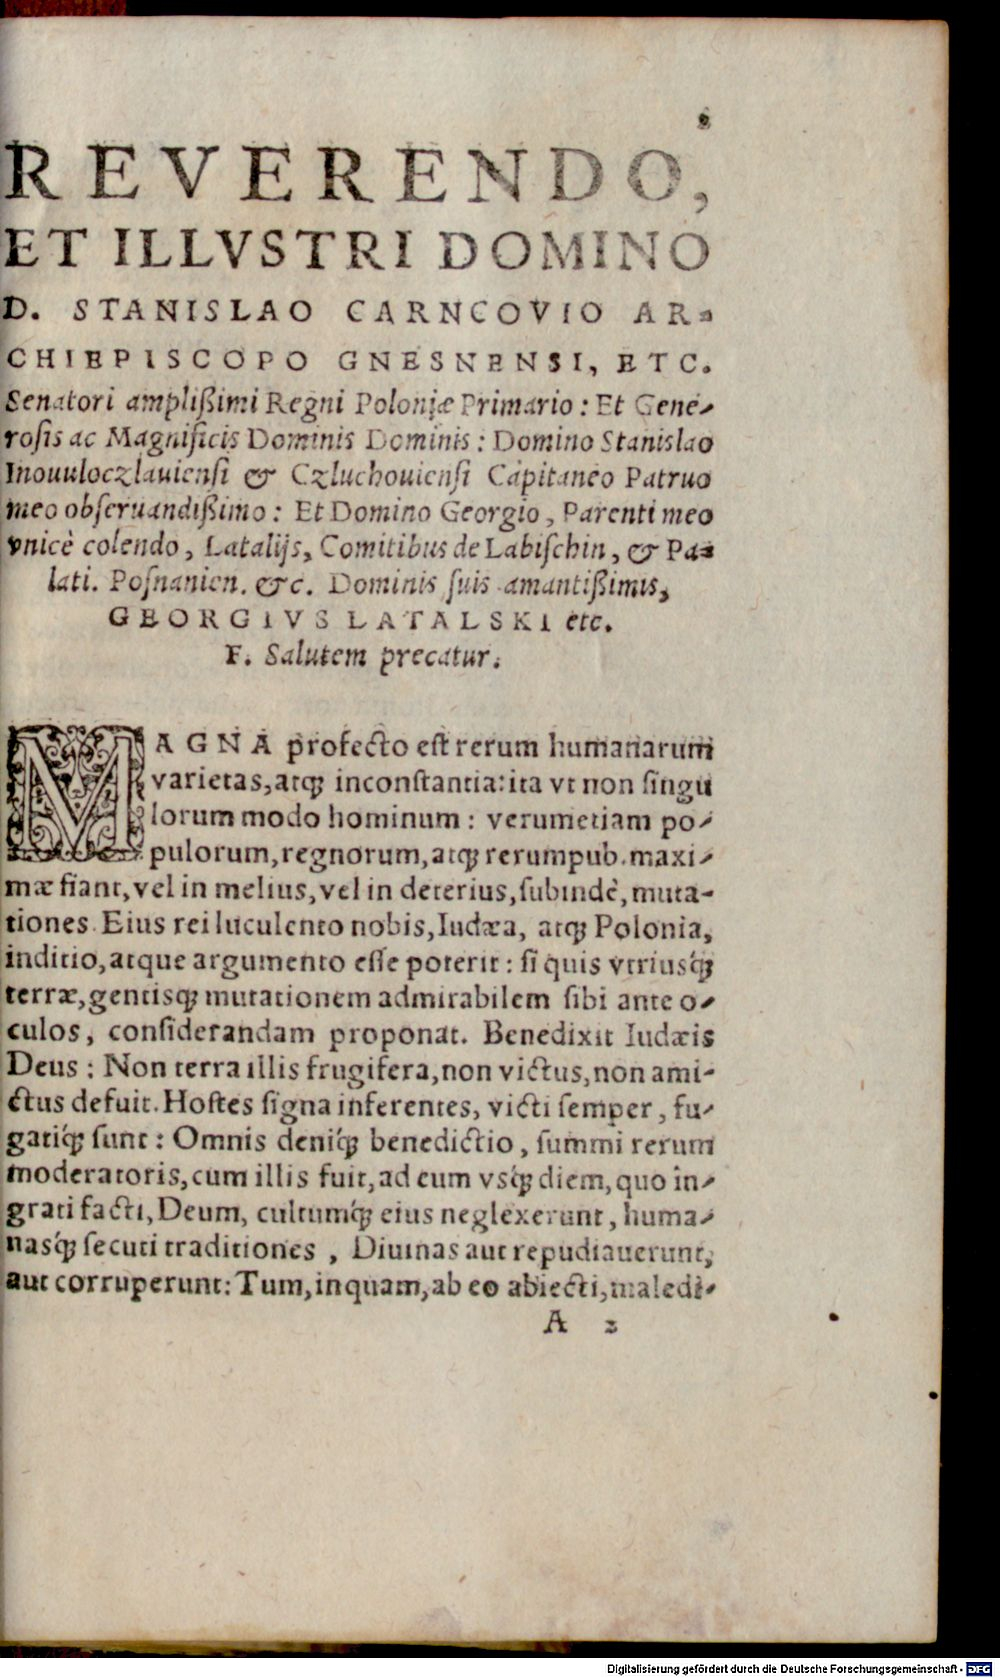 REVERENDO,
ET ILLVSTRI DOMINO
D. STANISLAO CARNCOVIO AR-
CHIEPISCOPO GNESNENSI, ETC.
Senatori amplißimi Regni Poloniæ Primario: Et Gene-
rosis ac Magnificis Dominis Dominis: Domino Stanislao
Inouuloczlauiensi & Czluchouiensi Capitaneo Patruo
meo obseruandißimo: Et Domino Georgio, Parenti meo
vnicè colendo, Latalijs, Comitibus de Labischin, & Pa-
lati. Posnanien. &c. Dominis suis amantißimis,
GEORGIVS LATALSKI etc.
F. Salutem precatur.
MAGNA profecto est rerum humanarum
varietas, atq; inconstantia: ita vt non singu
lorum modo hominum: verumetiam po-
pulorum, regnorum, atq; rerumpub. maxi-
mæ fiant, vel in melius, vel in deterius, subindè, muta-
tiones. Eius rei luculento nobis, Iudæa, atq; Polonia,
inditio, atque argumento esse poterit: si quis vtriusq́;
terræ, gentisq; mutationem admirabilem sibi ante o-
culos, considerandam proponat. Benedixit Iudæis
Deus: Non terra illis frugifera, non victus, non ami-
ctus defuit. Hostes signa inferentes, victi semper, fu-
gatiq́; sunt: Omnis deniq́; benedictio, summi rerum
moderatoris, cum illis fuit, ad eum vsq́; diem, quo in-
grati facti, Deum, cultumq́; eius neglexerunt, huma-
nasq́; secuti traditiones, Diuinas aut repudiauerunt,
aut corruperunt: Tum, inquam, ab eo abiecti, maledi-
A 2
Digitalisierung gefördert durch die Deutsche Forschungsgemeinschaft - DFG